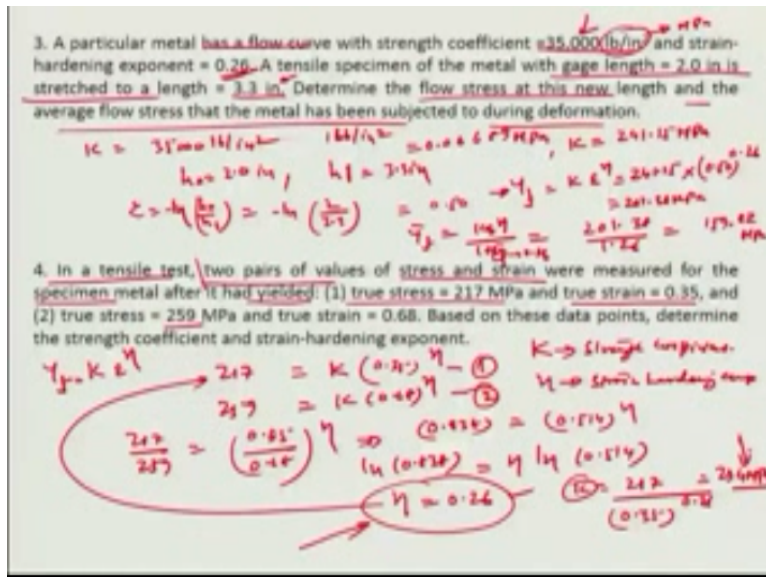 MPa
3. A particular metal has a flow curve with strength coefficient =35,000 lb/in² and strain-
hardening exponent = 0.26. A tensile specimen of the metal with gage length = 2.0 in is
stretched to a length = 3.3 in. Determine the flow stress at this new length and the
average flow stress that the metal has been subjected to during deformation.
K = 35000 lb/in² 1 lb/in² = 0.00689 MPa, K = 241.15 MPa
h₀ = 2.0 in, h1 = 3.3 in
ε = -ln (h₀/h₁) = -ln (2/3.3) = 0.50 → Yf = K ε^η = 241.15 × (0.50)^0.26
= 201.38 MPa
Ȳf = = 201.38/1.26 = MPa
4. In a tensile test, two pairs of values of stress and strain were measured for the
specimen metal after it had yielded: (1) true stress = 217 MPa and true strain = 0.35, and
(2) true stress = 259 MPa and true strain = 0.68. Based on these data points, determine
the strength coefficient and strain-hardening exponent.
Yf = K ε^η → 217 = K (0.35)^η - ① K →
259 = K (0.68)^η - ② η → strain hardening exp
217/259 = (0.35/0.68)^η ⇒ (0.838) = (0.514)^η
ln (0.838) = η ln (0.514)
η = 0.26 K = 217/(0.35)^0.26 =